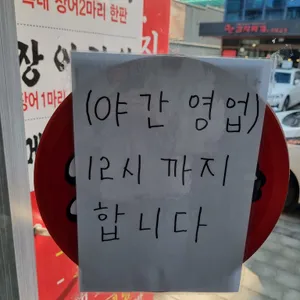 장어2마리 한판
장어
장어1마리
(야간 영업)
12시 까지
합니다